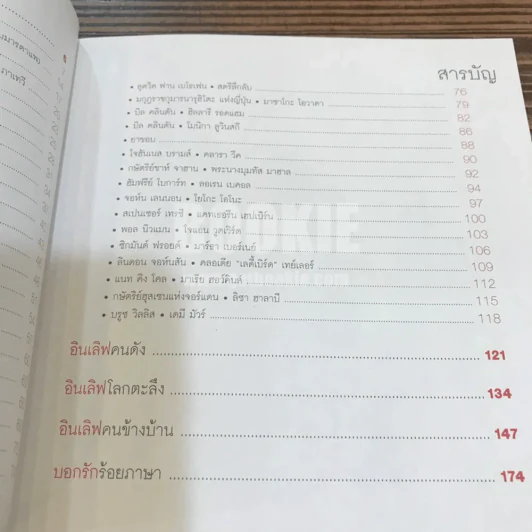 สารบัญ
• ลุดวิค ฟาน เบโธเฟน • สตรีลึกลับ 76
• มกุฎราชกุมารนารุฮิโตะ แห่งญี่ปุ่น • มาซาโกะ โอวาดา 79
• บิล คลินตัน • ฮิลลารี รอดแฮม 82
• บิล คลินตัน • โมนิกา ลูวินสกี 86
• ยาขอบ 88
• โจฮันเนส บรามส์ • คลารา วีค 90
• กษัตริย์ชาห์ จาฮาน • พระนางมุมทัส มาฮาล 92
• ฮัมฟรีย์ โบการ์ท • ลอเรน เบคอล 94
• จอห์น เลนนอน • โยโกะ โอโนะ 97
• สเปนเซอร์ เทรซี่ • แคทเธอรีน เฮปเบิร์น 100
• พอล นิวแมน • โจแอน วูดเวิร์ด 103
• ซิกมันด์ ฟรอยด์ • มาร์ธา เบอร์เนย์ 106
• ลินดอน จอห์นสัน • คลอเดีย "เลดี้เบิร์ด" เทย์เลอร์ 109
• แนท คิง โคล • มาเรีย ฮอว์คินส์ 112
• กษัตริย์ฮุสเซนแห่งจอร์แดน • ลิซา ฮาลาบี 115
• บรูซ วิลลิส • เดมี มัวร์ 118
อินเลิฟคนดัง 121
อินเลิฟโลกตะลึง 134
อินเลิฟคนข้างบ้าน 147
บอกรักร้อยภาษา 174